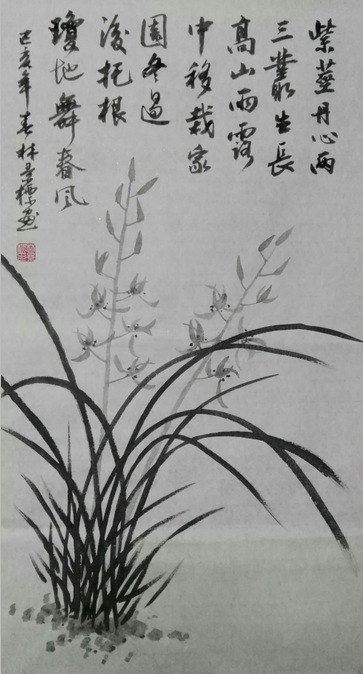 紫莖丹心兩
三叢生長
髙山雨露
中移栽家
園冬過
後托根
瓊地舞春風
己亥年春林